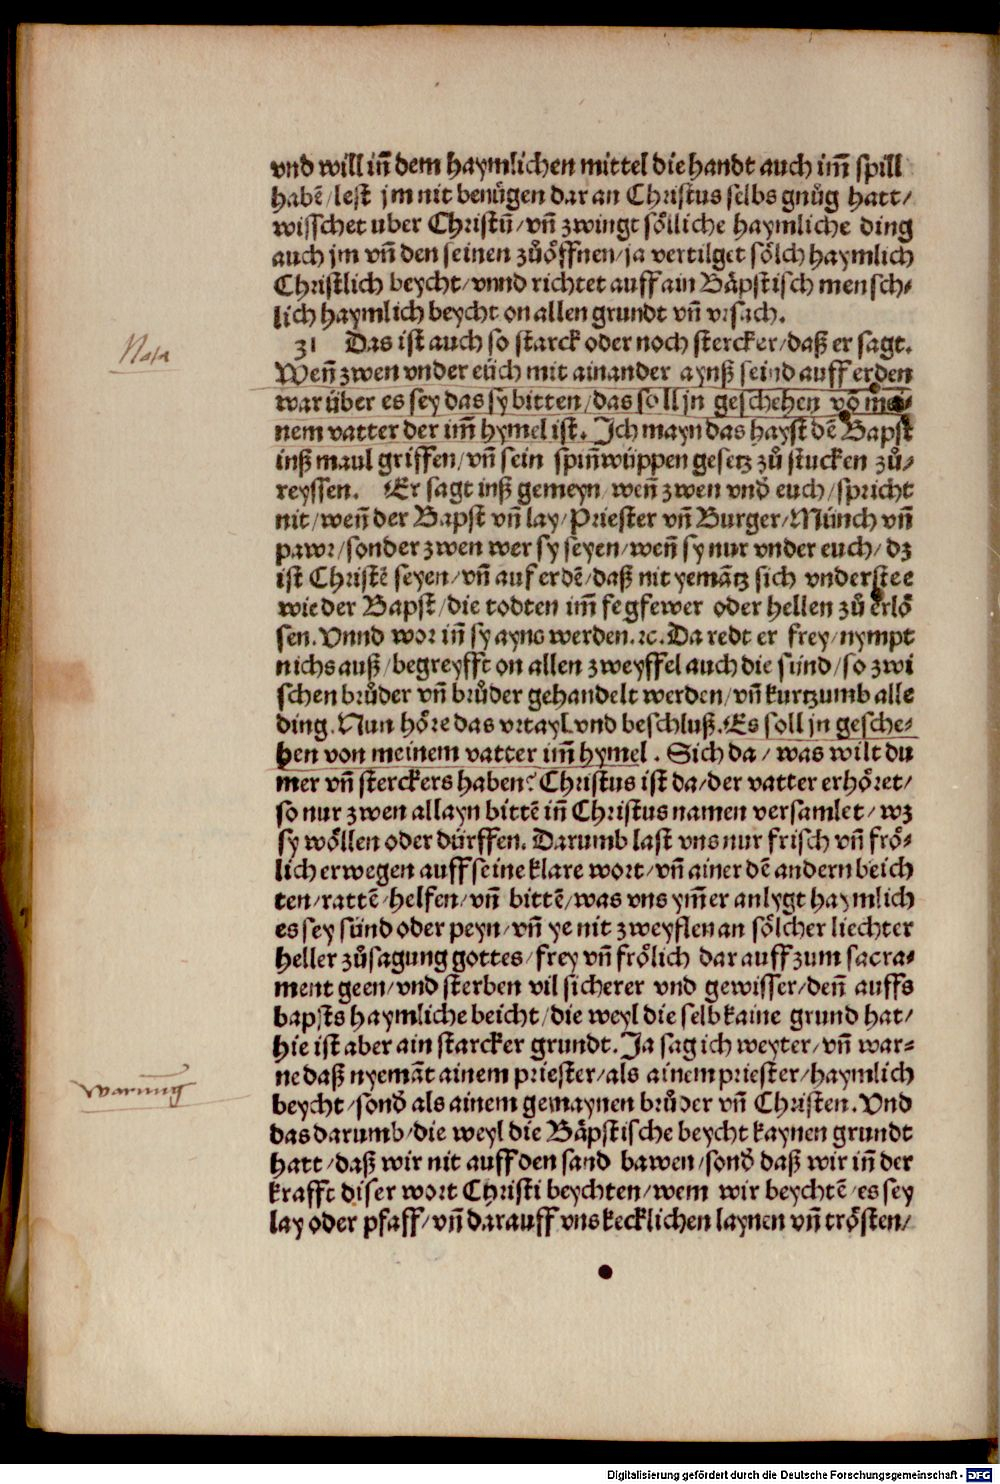 vnd will in̄ dem haymlichen mittel die handt auch im̄ spill
habē/lest jm nit benügen dar an Christus selbs gnůg hatt/
wisschet uber Christū/vn̄ zwingt sölliche haymliche ding
auch jm vn̄ den seinen zůöffnen/ja vertilget sölch haymlich
Christlich beycht/vnnd richtet auff ain Bäpstisch mensch⸗
lich haymlich beycht on allen grundt vn̄ vrsach.
31 Das ist auch so starck oder noch stercker/daß er sagt.
Nota
Wen̄ zwen vnder eüch mit ainander aynß seind auff erden
war über es sey das sy bitten/das soll jn geschehen vō mai⸗
nem vatter der im̄ hymel ist. Ich mayn das hayst dē Bapst
inß maul griffen/vn̄ sein spin̄wüppen gesetz zů stucken zů⸗
reyssen. Er sagt inß gemeyn/wen̄ zwen vnd̄ euch/spricht
nit/wen̄ der Bapst vn̄ lay/Priester vn̄ Burger/Münch vn̄
pawr/sonder zwen wer sy seyen/wen̄ sy nur vnder euch/dz
ist Christē seyen/vn̄ auf erdē/daß nit yemātz sich vnderstee
wie der Bapst/die todten im̄ fegfewer oder hellen zů erlö
sen. Vnnd wor in̄ sy ayns werden.ꝛc. Da redt er frey/nympt
nichs auß/begreyfft on allen zweyffel auch die sünd/so zwi
schen brůder vn̄ brůder gehandelt werden/vn̄ kurtzumb alle
ding. Nun höre das vrtayl vnd beschluß. Es soll jn gesche⸗
hen von meinem vatter im̄ hymel. Sich da/was wilt du
mer vn̄ sterckers haben? Christus ist da/der vatter erhöret/
so nur zwen allayn bittē in̄ Christus namen versamlet/wz
sy wöllen oder dürffen. Darumb last vns nur frisch vn̄ frö⸗
lich erwegen auff seine klare wort/vn̄ ainer dē andern beich
ten/rattē/helfen/vn̄ bittē/was vns ym̄er anlygt haymlich
es sey sünd oder peyn/vn̄ ye nit zweyflen an sölcher liechter
heller zůsagung gottes/frey vn̄ frölich dar auff zum sacra⸗
ment geen/vnd sterben vil sicherer vnd gewisser/den̄ auffs
bapsts haymliche beicht/die weyl die selb kaine grund hat/
hie ist aber ain starcker grundt. Ja sag ich weyter/vn̄ war⸗
ne daß nyemāt ainem priester/als ainem priester/haymlich
warnu̅g
beycht/sond̄ als ainem gemaynen brůder vn̄ Christen. Vnd
das darumb/die weyl die Bäpstische beycht kaynen grundt
hatt/daß wir nit auff den sand bawen/sond̄ daß wir in̄ der
krafft diser wort Christi beychten/wem wir beychtē/es sey
lay oder pfaff/vn̄ darauff vns kecklichen laynen vn̄ trösten/
Digitalisierung gefördert durch die Deutsche Forschungsgemeinschaft - DFG